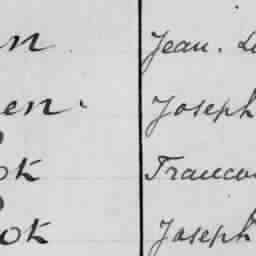 n Jean. L
en. Joseph
ok Francoi
ok Joseph